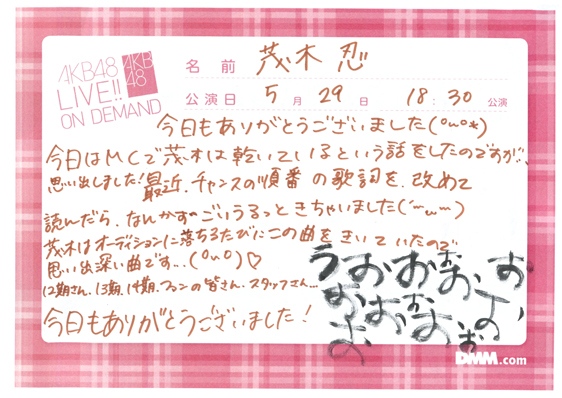 AKB48
LIVE!!
ON DEMAND
AKB
48
名前 茂木 忍
公演日 5月29日 18:30公演
今日もありがとうございました(°ᴗ°*)
今日はMCで茂木は乾いているという話をしたのですが、
思い出しました!最近、チャンスの順番の歌詞を、改めて
読んだら、なんかすごいうるっときちゃいました(´ᴗᴗ`)
茂木はオーディションに落ちるたびにこの曲をきいていたので
思い出深い曲です…(°ᴗ°)♡
12期さん、13期、14期、ファンの皆さん、スタッフさん…
今日もありがとうございました!
DMM.com